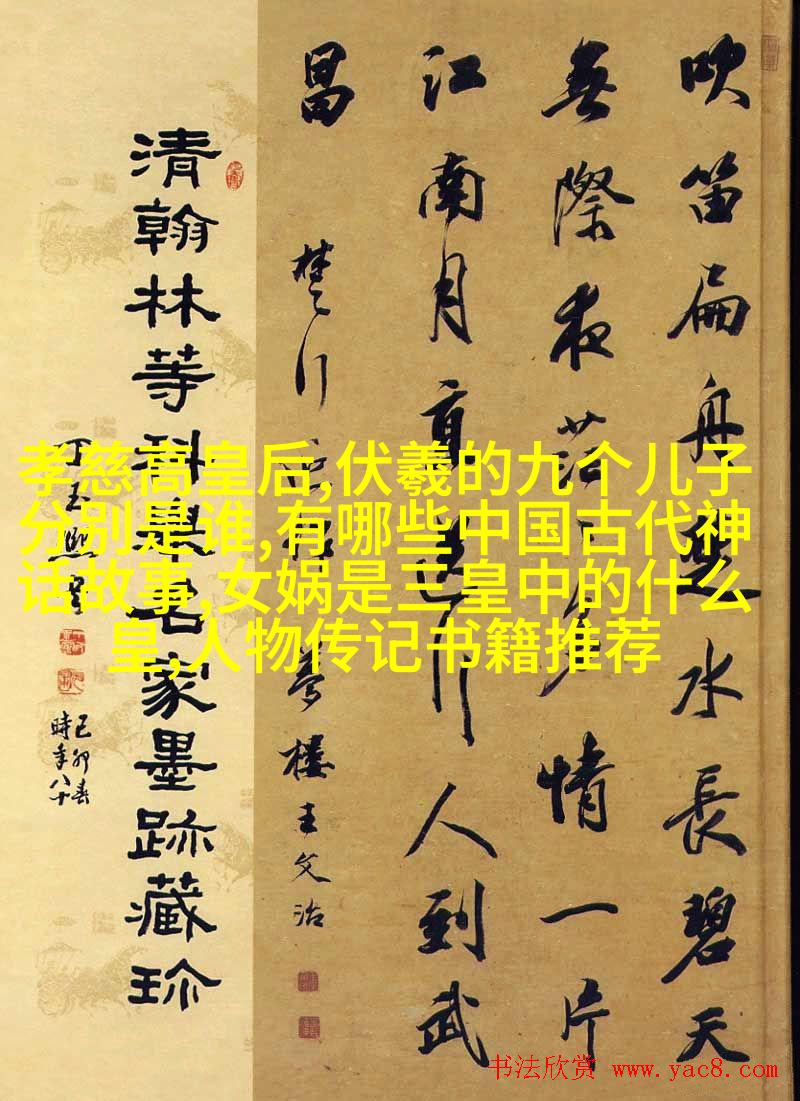 孝慈高皇后,伏羲的九个儿子
分别是谁,有哪些中国古代神
话故事,女娲是三皇中的什么
皇,人物传记书籍推荐
吹笛扁舟水長碧天
無際夜茫情一片
江南月直送行人到武
昌
楚行 夢樓王文治
清翰林等科舉名家墨跡藏珍
己卯春
時年八十
书法欣赏 www.yac8.com